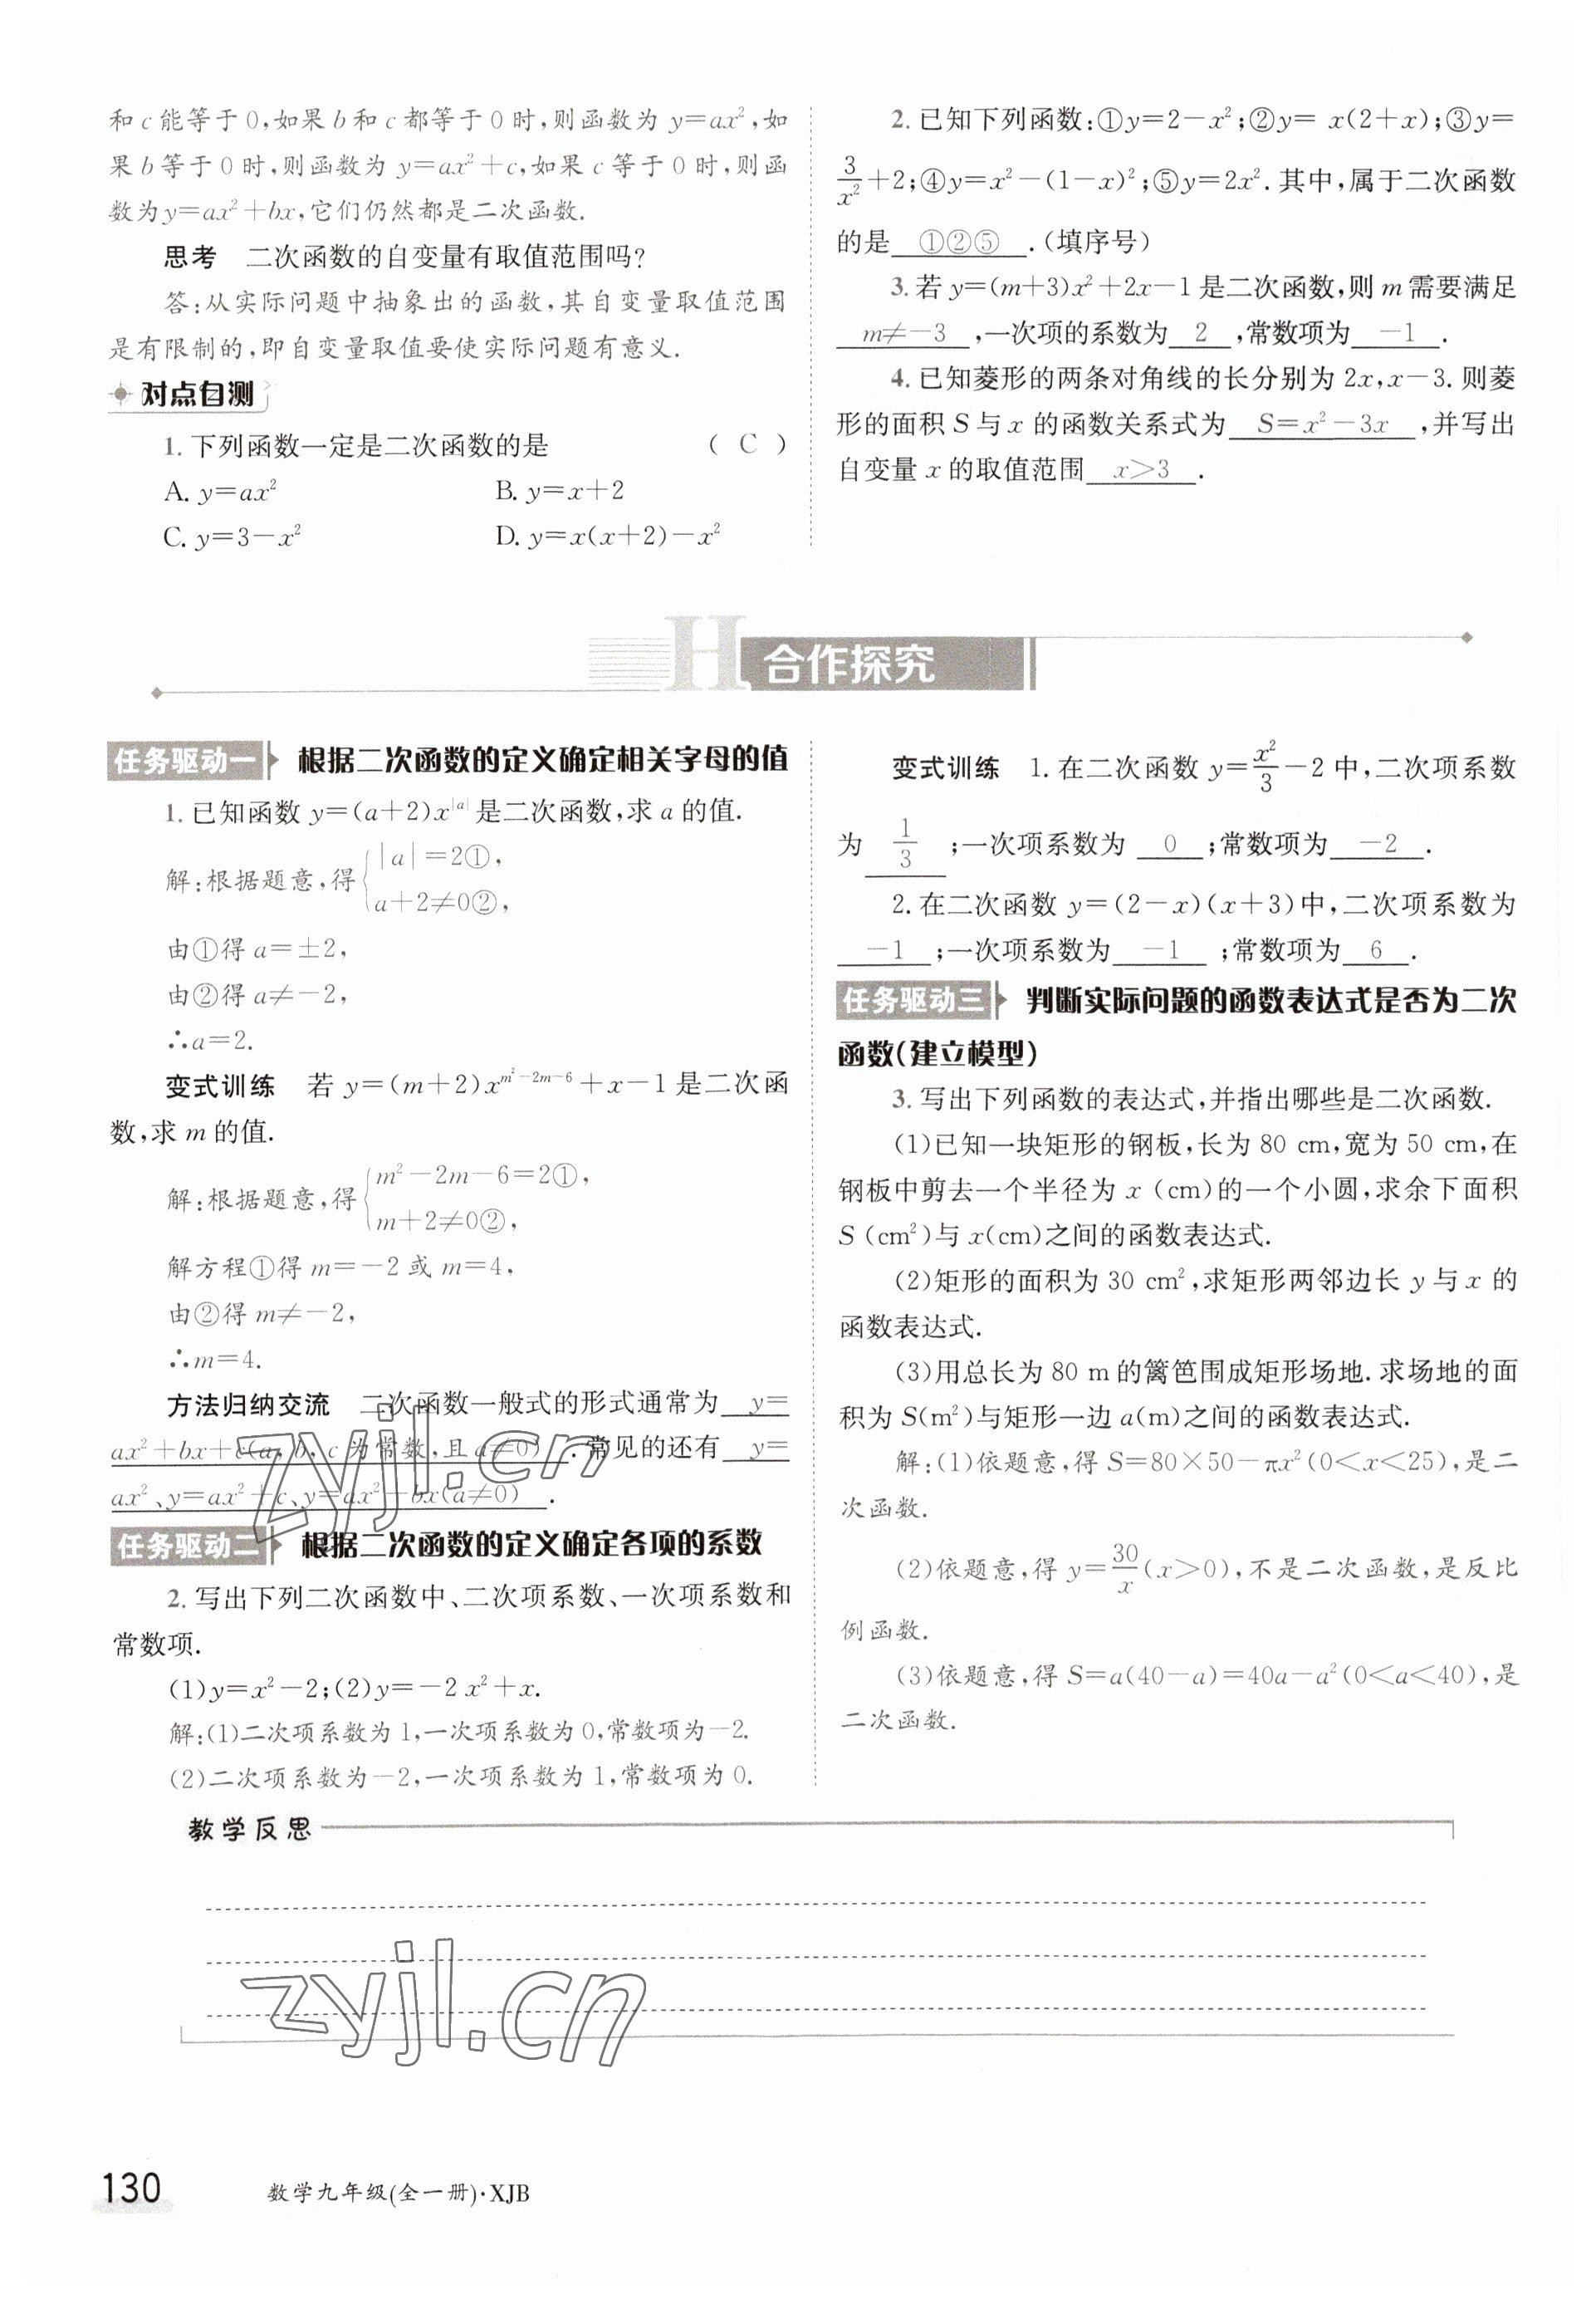 和c能等于0,如果b和c都等于0时,则函数为 y=ax²,如
果b等于0时,则函数为 y=ax²+c,如果c等于0时,则函
数为y=ax²+bx,它们仍然都是二次函数.
思考 二次函数的自变量有取值范围吗?
答:从实际问题中抽象出的函数,其自变量取值范围
是有限制的,即自变量取值要使实际问题有意义.
对点自测
1.下列函数一定是二次函数的是 ( C )
A. y=ax² B. y=x+2
C. y=3-x² D. y=x(x+2)-x²
2.已知下列函数:①y=2-x²;②y= x(2+x);③y=
3/x²+2;④y=x²-(1-x)²;⑤y=2x².其中,属于二次函数
的是 ①②⑤ .(填序号)
3.若 y=(m+3)x²+2x-1是二次函数,则m需要满足
m≠-3 ,一次项的系数为 2 ,常数项为 -1 .
4.已知菱形的两条对角线的长分别为 2x,x-3.则菱
形的面积S与x 的函数关系式为 S=x²-3x ,并写出
自变量 x 的取值范围 x>3 .
H 合作探究
任务驱动一 根据二次函数的定义确定相关字母的值
1.已知函数 y=(a+2)x^|a| 是二次函数,求 a 的值.
解:根据题意,得{|a|=2①,
a+2≠0②,
由①得 a=±2,
由②得 a≠-2,
∴a=2.
变式训练 若 y=(m+2)x^(m²-2m-6)+x-1是二次函
数,求 m 的值.
解:根据题意,得{m²-2m-6=2①,
m+2≠0②,
解方程①得 m=-2 或 m=4,
由②得 m≠-2,
∴m=4.
方法归纳交流 二次函数一般式的形式通常为 y=
ax²+bx+c(a,b,c为常数,且a≠0) .常见的还有 y=
ax²、y=ax²+c、y=ax²+bx(a≠0) .
任务驱动二 根据二次函数的定义确定各项的系数
2.写出下列二次函数中、二次项系数、一次项系数和
常数项.
(1)y=x²-2;(2)y=-2x²+x.
解:(1)二次项系数为1,一次项系数为0,常数项为-2.
(2)二次项系数为-2,一次项系数为1,常数项为0.
变式训练 1.在二次函数 y=x²/3-2中,二次项系数
为 1/3 ;一次项系数为 0 ;常数项为 -2 .
2.在二次函数 y=(2-x)(x+3)中,二次项系数为
-1 ;一次项系数为 -1 ;常数项为 6 .
任务驱动三 判断实际问题的函数表达式是否为二次
函数(建立模型)
3.写出下列函数的表达式,并指出哪些是二次函数.
(1)已知一块矩形的钢板,长为 80 cm,宽为 50 cm,在
钢板中剪去一个半径为 x (cm)的一个小圆,求余下面积
S (cm²)与 x(cm)之间的函数表达式.
(2)矩形的面积为 30 cm²,求矩形两邻边长 y 与 x 的
函数表达式.
(3)用总长为 80 m 的篱笆围成矩形场地.求场地的面
积为 S(m²)与矩形一边 a(m)之间的函数表达式.
解:(1)依题意,得 S=80×50-πx²(0<x<25),是二
次函数.
(2)依题意,得 y=30/x(x>0),不是二次函数,是反比
例函数.
(3)依题意,得 S=a(40-a)=40a-a²(0<a<40),是
二次函数.
zyjl.cn
教学反思
zyjl.cn
130 数学九年级(全一册)·XJB